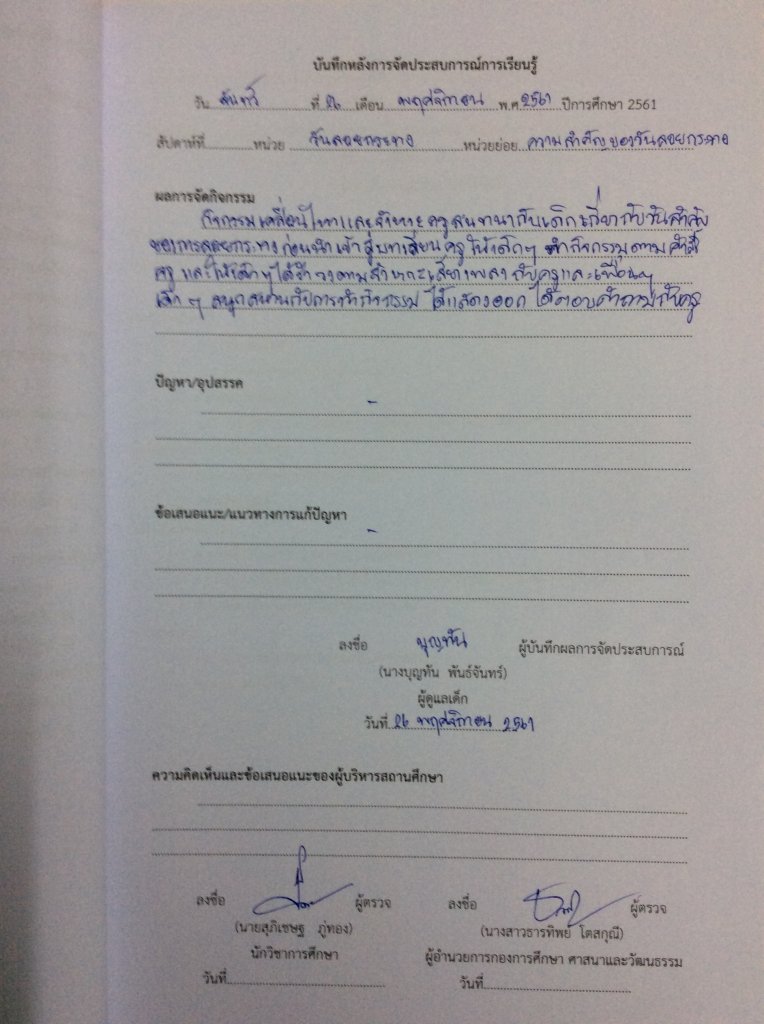 บันทึกหลังการจัดประสบการณ์การเรียนรู้
วัน จันทร์ ที่ 26 เดือน พฤศจิกายน พ.ศ 2561 ปีการศึกษา 2561
สัปดาห์ที่ หน่วย วันลอยกระทง หน่วยย่อย ความสำคัญของวันลอยกระทง
ผลการจัดกิจกรรม
กิจกรรมเคลื่อนไหวและจังหวะ ครูสนทนากับเด็กเกี่ยวกับวันสำคัญ
ของการลอยกระทง ก่อนนำเข้าสู่บทเรียน ครูให้เด็กๆ ทำกิจกรรมตามคำสั่ง
ครู และให้เด็กๆ ได้รำวงตาม กับครูและเพื่อนๆ
เด็กๆ สนุกสนานกับการทำกิจกรรม ได้แสดงออก ได้ตอบคำถามกับครู
ปัญหา/อุปสรรค
-
ข้อเสนอแนะ/แนวทางการแก้ปัญหา
-
ลงชื่อ บุญทัน ผู้บันทึกผลการจัดประสบการณ์
(นางบุญทัน พันธ์จันทร์)
ผู้ดูแลเด็ก
วันที่ 26 พฤศจิกายน 2561
ความคิดเห็นและข้อเสนอแนะของผู้บริหารสถานศึกษา
ลงชื่อ ผู้ตรวจ ลงชื่อ ผู้ตรวจ
(นายสุภิเชษฐ ภู่ทอง) (นางสาวธารทิพย์ โตสกุณี)
นักวิชาการศึกษา ผู้อำนวยการกองการศึกษา ศาสนาและวัฒนธรรม
วันที่ วันที่